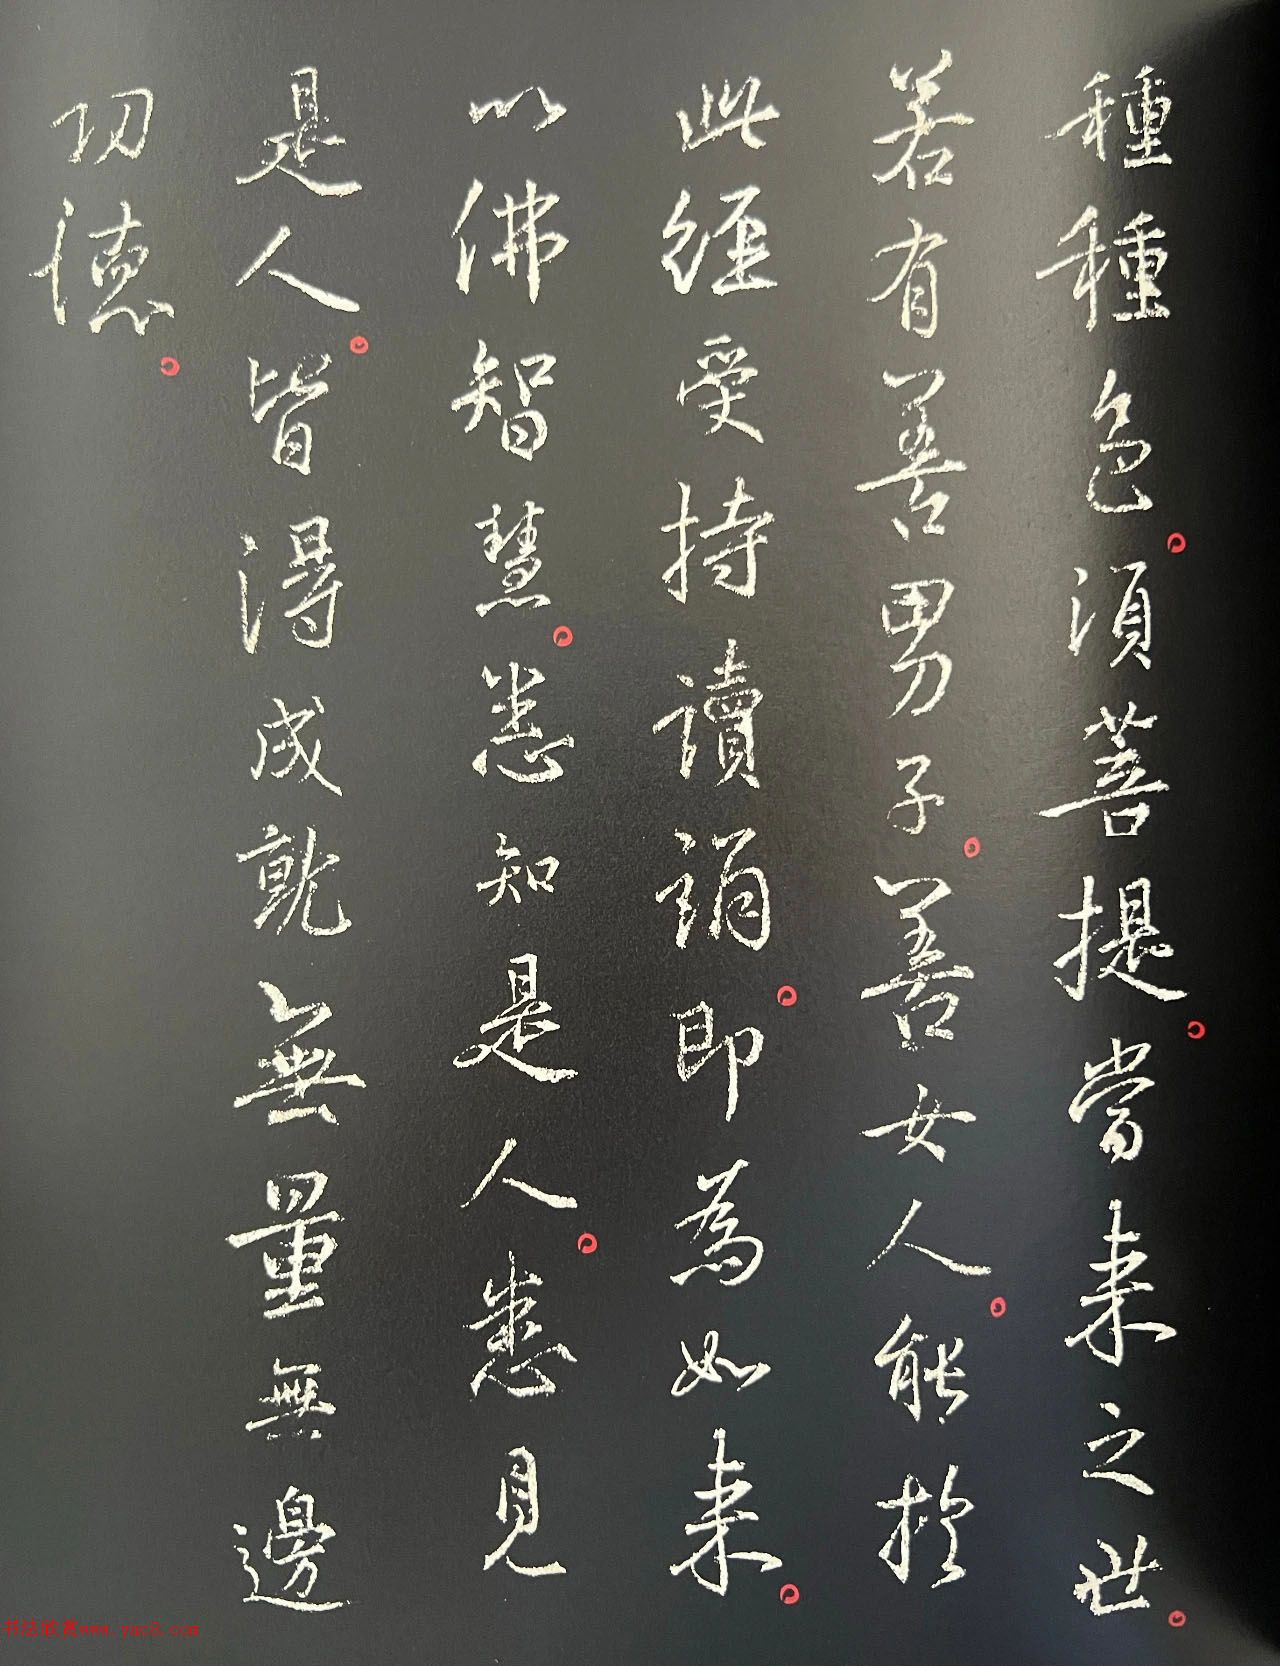 種種色。湏菩提。當来之世。
若有善男子。善女人。能於
此經受持讀誦。即為如来。
以佛智慧。悉知是人。悉見
是人。皆得成就無量無邊
功德。
书法欣赏www.yac8.com